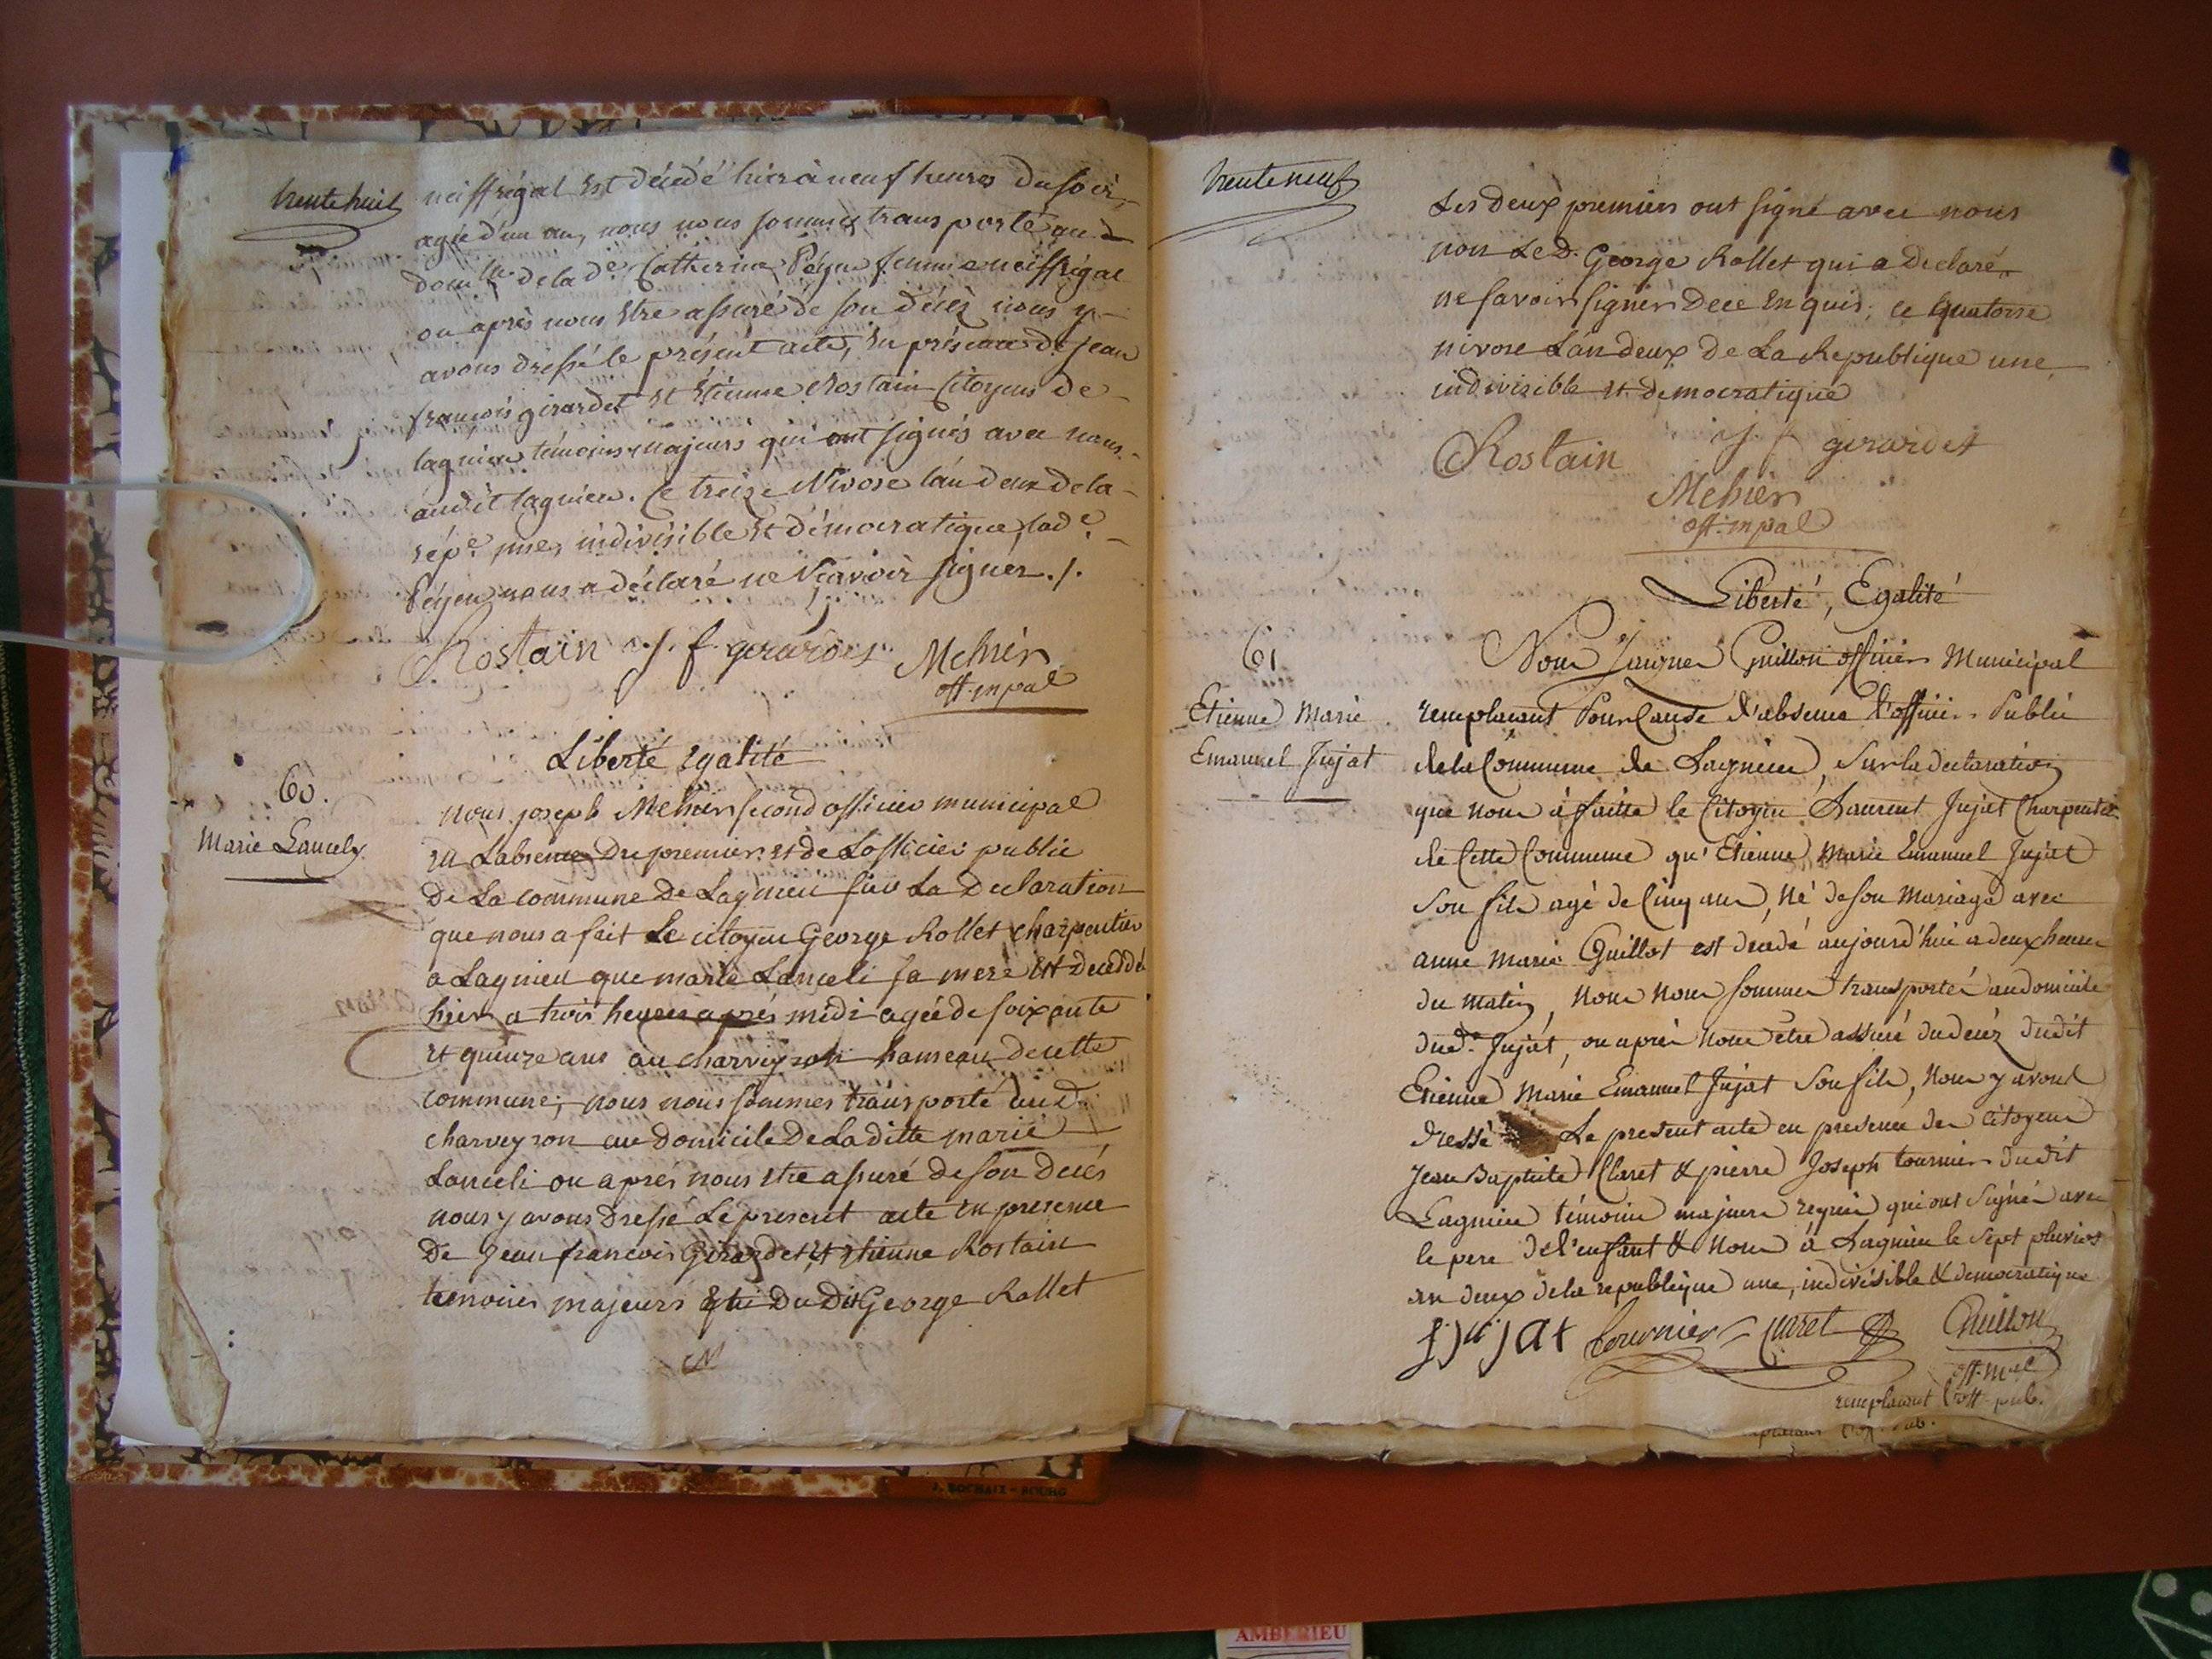 trente huit
neiffregal est décédé hier à neuf heures du soir,
agée d'un an, nous nous sommes transporté au d
domlle de la de Catherine Péyen femme neiffregal
ou après nous être assuré de son décès nous y
avons dressé le présent acte, en présence de jean
françois girardet et Etienne Rostain Citoyens de
lagnieu témoins majeurs qui ont signés avec nous
audit lagnieu. Ce treize Nivose l'an deux de la
répe. une, indivisible et démocratique, lade
Péyen nous a déclaré ne Sçavoir signer ./.
Rostain J. f. gerardet Mehier
off. mpal
Liberté egalité
60.
Marie Lancely
nous joseph Mehier second officier municipal
en Labsence Du premier et de Lofficier public
De La commune De Lagnieu sur La Declaration
que nous a fait Le citoyen George Rollet charpentier
a Lagnieu que marie Lanceli sa mere est deceddé
hier a trois heures après midi agée de soixante
et quinze ans au charveyron hameau de cette
commune; nous nous sommes transporté aud.
charveyron au domicile De La ditte marie
Lanceli ou après nous etre assuré de son decés
nous y avons Dressé Le present acte en presence
De Jean francois Girardet, et etienne Rostain
temoins majeurs & Du Dit George Rollet
M
trente neuf
Les deux premiers ont signé avec nous
non Le D. George Rollet qui a Declaré
ne savoir signer De ce enquis; ce quatorse
nivose L'an deux De La Republique une
indivisible et democratique
Rostain J f gerardet
Mehier
off. mpal
Liberté, Egalité
61
Etienne Marie
Emanuel Jujat
Nous Jacques Guillon officier Municipal
remplacant Pour Cause d'absence l'officier Public
de la Commune de Lagnieu, Sur la declaration
que nous à faitte le Citoyen Laurent Jujat Charpentier
de Cette Commune qu'Etienne Marie Emanuel Jujat
Son fils agé de Cinq ans, Né de son Mariage avec
anne Marie Guillot est decedé aujourd'hui a deux heures
du matin, Nous Nous sommes transportés au domicile
dud. Jujat, ou après Nous être assuré du decéz dudit
Etienne Marie Emanuel Jujat Son fils, Nous y avons
dressé Le present acte en presence des Citoyens
Jean Baptiste Claret & pierre Joseph tournier dudit
Lagnieu témoins majeurs requis qui ont Signés avec
le pere de l'enfant & Nous à Lagnieu le Sept pluvios
an deux de la republique une, indivisible & democratique
jujat tournier Claret Guillon
off. mal
remplacant l'off. pub.
J. ROCHAIX - BOURG
AMBERIEU